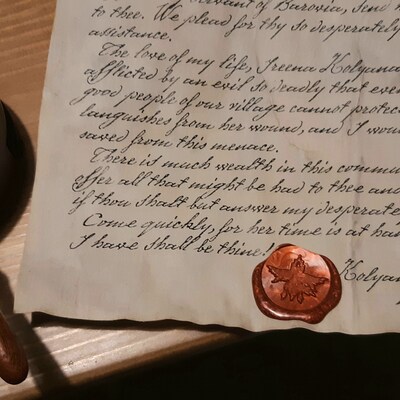 servant of Barovia, send h
to thee. We plead for thy so desperately
assistance.
The love of my life, Ireena Kolyana
afflicted by an evil so deadly that even
good people of our village cannot protec
languishes from her wound, and I wou
saved from this menace.
There is much wealth in this commu
offer all that might be had to thee and
if thou shalt but answer my desperate
Come quickly, for her time is at han
I have shall be thine!
Kolyan